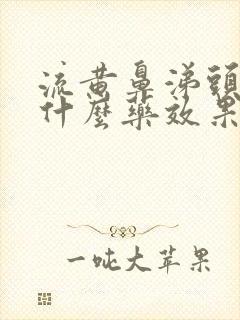 流黄鼻涕頭
什麼藥效果
一吨大苹果